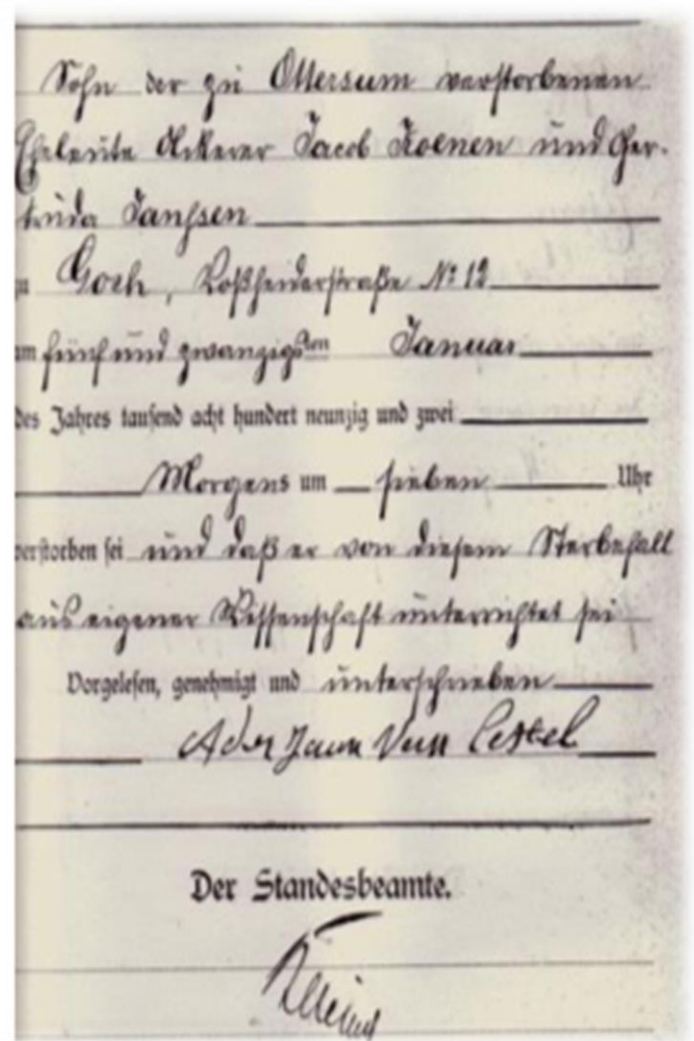 Sohn der zu Ottersum verstorbenen
Eheleute Ackerer Jacob Koenen und Ger-
truda Janssen
Goch, Voßheiderstraße No 12
am fünf und zwanzigsten Januar
des Jahres tausend acht hundert neunzig und zwei
Morgens um sieben Uhr
verstorben sei und daß er von diesem Sterbefall
aus eigener Wissenschaft unterrichtet sei
Vorgelesen, genehmigt und unterschrieben
Van
Der Standesbeamte.